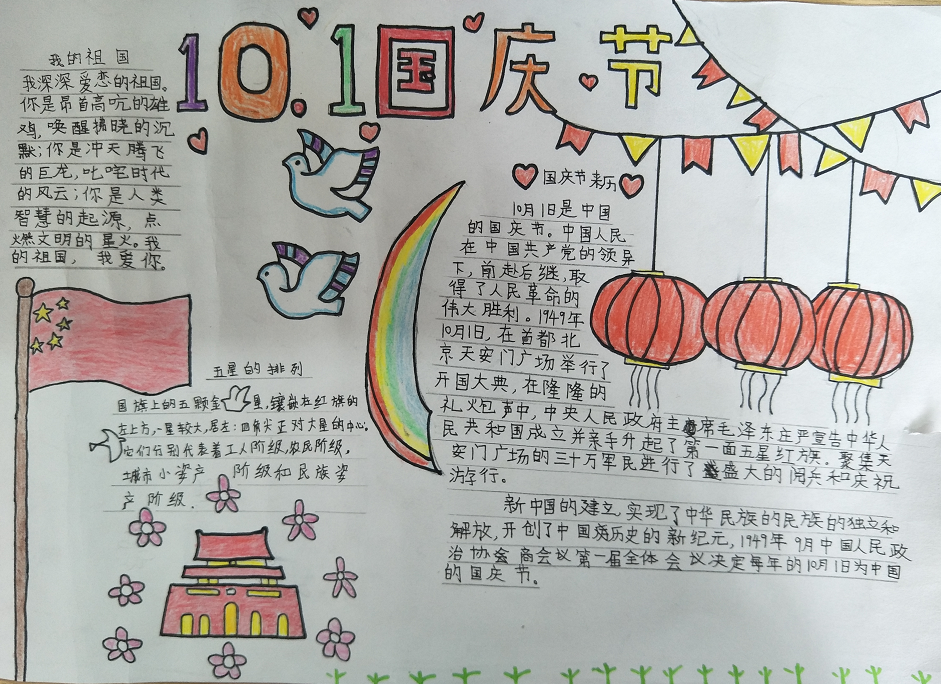 10.1国庆节
我的祖国
我深深爱恋的祖国。
你是昂首高吭的雄
鸡,唤醒拂晓的沉
默;你是冲天腾飞
的巨龙,叱咤时代
的风云;你是人类
智慧的起源,点
燃文明的星火。我
的祖国,我爱你。
五星的排列
国旗上的五颗金星,镶嵌在红旗的
左上方,一星较大,居左:四角尖正对大星的中心。
它们分别代表着工人阶级,农民阶级,
城市小资产阶级和民族资
产阶级.
国庆节来历
10月1日是中国
的国庆节。中国人民
在中国共产党的领导
下,前赴后继,取
得了人民革命的
伟大胜利。1949年
10月1日,在首都北
京天安门广场举行了
开国大典,在隆隆的
礼炮声中,中央人民政府主席毛泽东庄严宣告中华人
民共和国成立并亲手升起了第一面五星红旗。聚集天
安门广场的三十万军民进行了盛大的阅兵和庆祝
游行。
新中国的建立,实现了中华民族的民族的独立和
解放,开创了中国历史的新纪元,1949年9月中国人民政
治协会商会议第一届全体会议决定每年的10月1日为中国
的国庆节。